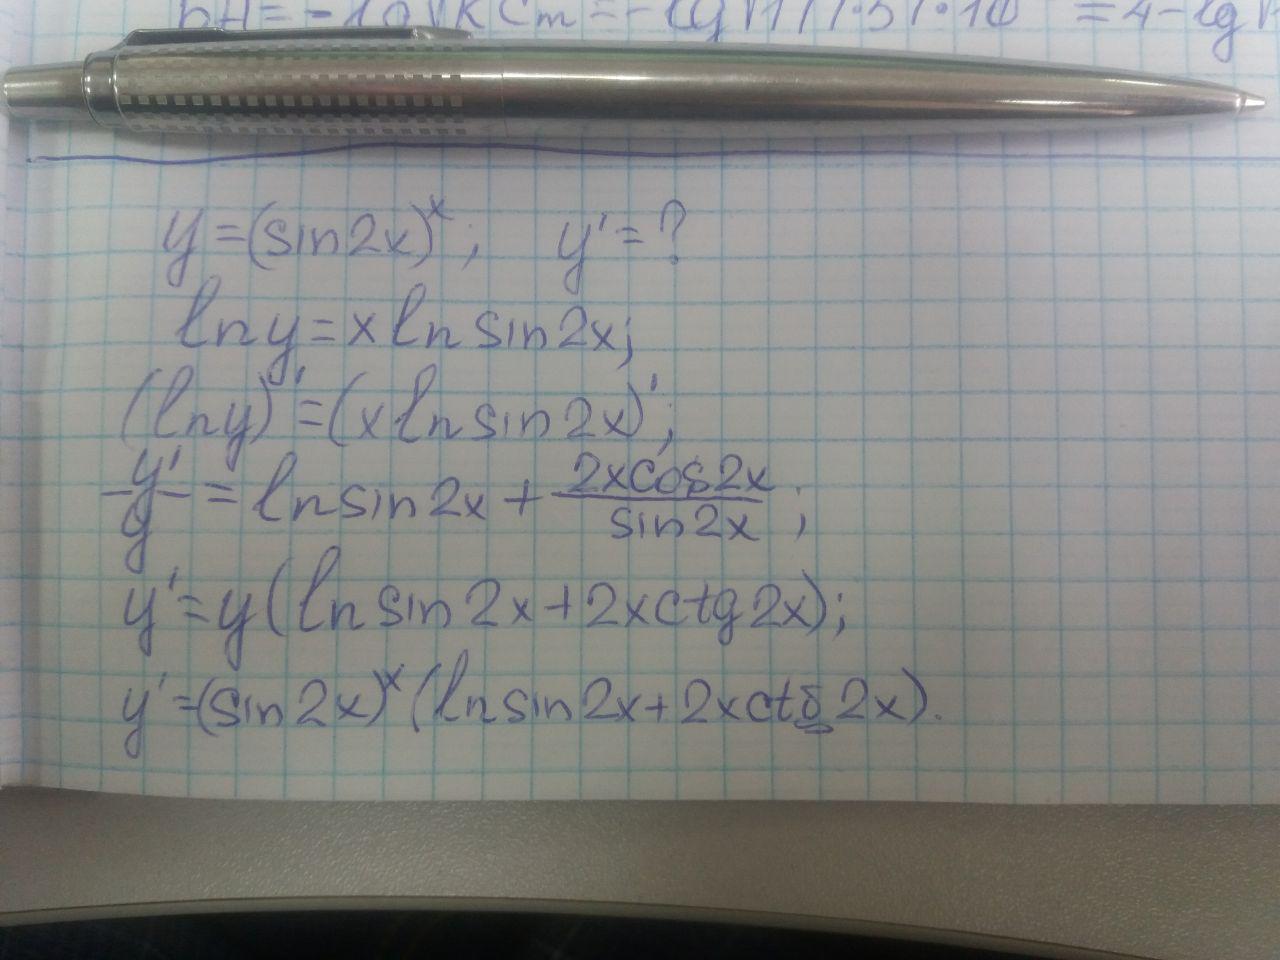 y=(sin2x)ˣ; y'=?
lny=xlnsin2x;
(lny)'=(xlnsin2x)';
y'/y=lnsin2x+2xcos2x/sin2x;
y'=y(lnsin2x+2xctg2x);
y'=(sin2x)ˣ(lnsin2x+2xctg2x).